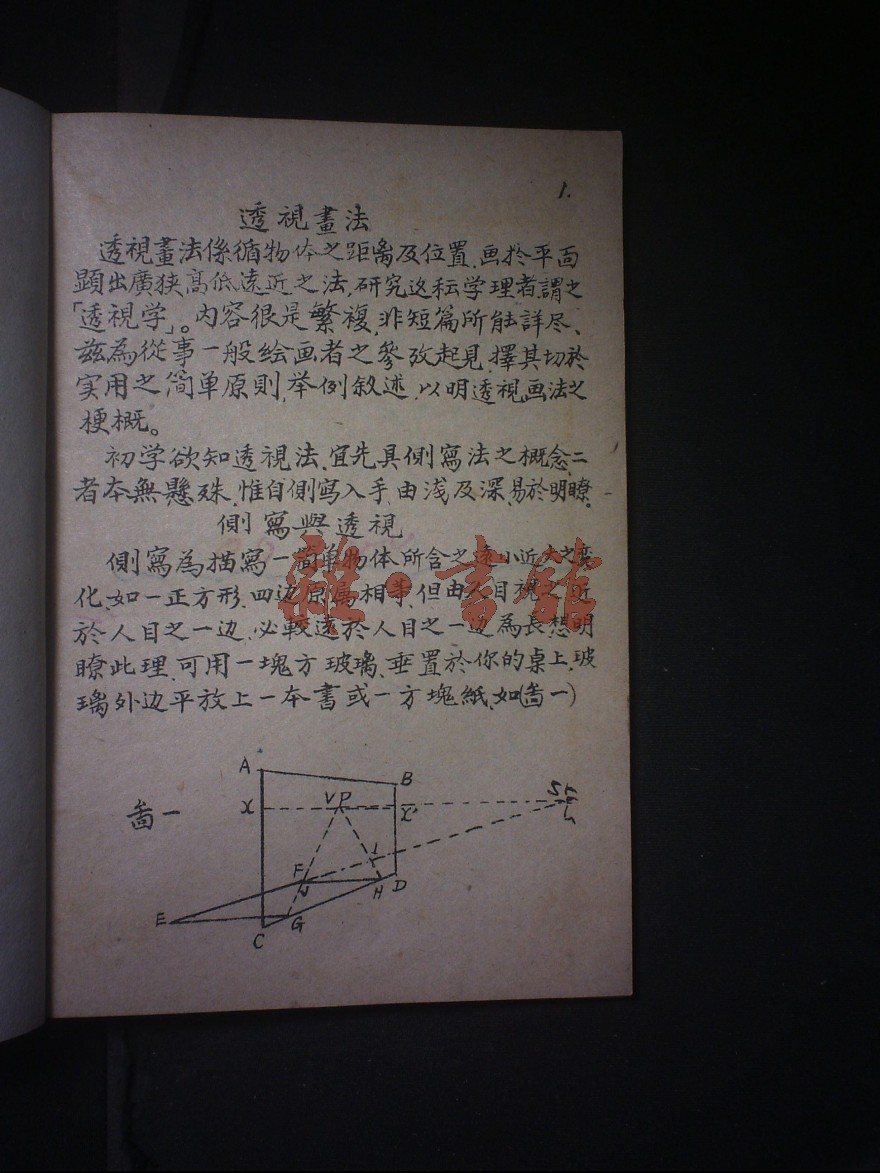 1.
透視畫法
透視畫法係循物体之距离及位置、画於平面
顕出廣狭高低遠近之法，研究这种学理者，謂之
「透視学」。内容很是繁複、非短篇所能詳尽、
茲為從事一般绘画者之參攷起見、擇其切於
实用之简单原則、举例敘述、以明透視画法之
梗概。
初学欲知透視法、宜先具側寫法之概念、二
者本無懸殊、惟自側寫入手、由浅及深、易於明瞭。
側寫與透視
側寫為描寫一简单物体、所含之遠小近大之变
化、如一正方形、四边原属相等、但由人目視之近
於人目之一边、必較遠於人目之一边為長、想明
瞭此理、可用一塊方玻璃、垂置於你的桌上、玻
璃外边平放上一本書或一方塊紙、如(啚一)
雜·書館
啚一
A
B
X
VP
X'
F
J
I
H
D
E
G
C